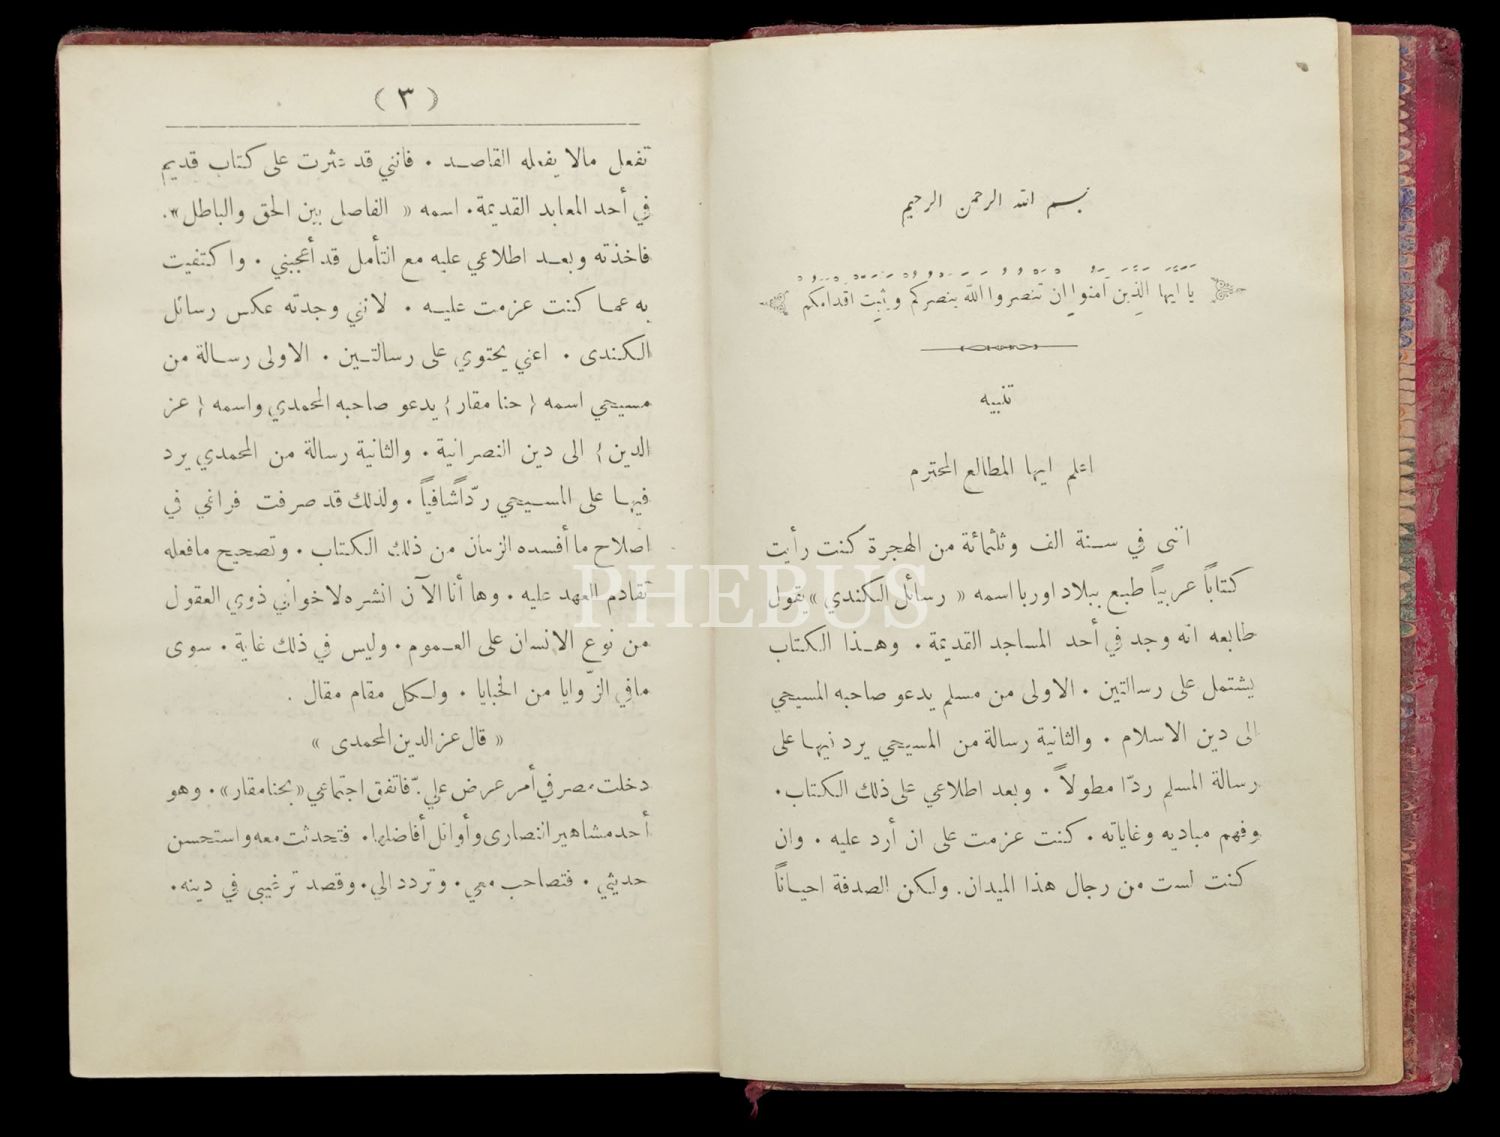 بسم الله الرحمن الرحيم
يا أيها الذين آمنوا إن تنصروا الله ينصركم ويثبت أقدامكم
تنبيه
اعلم ايها المطالع المحترم
انني في سنة الف وثلثمائة من الهجرة كنت رأيت
كتاباً عربياً طبع ببلاد اوربا اسمه « رسائل الكندي » يقول
طابعه انه وجد في أحد المساجد القديمة ٠ وهذا الكتاب
يشتمل على رسالتين ٠ الاولى من مسلم يدعو صاحبه المسيحي
الى دين الاسلام ٠ والثانية رسالة من المسيحي يرد فيها على
رسالة المسلم ردّا مطولاً ٠ وبعد اطلاعي على ذلك الكتاب ٠
وفهم مباديه وغاياته ٠ كنت عزمت على ان أرد عليه ٠ وان
كنت لست من رجال هذا الميدان. ولكن الصدفة احياناً
( ٣ )
تفعل مالا يفعله القاصد ٠ فانني قد عثرت على كتاب قديم
في أحد المعابد القديمة ٠ اسمه « الفاصل بين الحق والباطل » .
فاخذته وبعد اطلاعي عليه مع التأمل قد أعجبني ٠ واكتفيت
به عما كنت عزمت عليه ٠ لانني وجدته عكس رسائل
الكندى ٠ اعني يحتوي على رسالتين ٠ الاولى رسالة من
مسيحي اسمه { حنا مقار } يدعو صاحبه المحمدي واسمه { عز
الدين } الى دين النصرانية ٠ والثانية رسالة من المحمدي يرد
فيها على المسيحي ردّاً شافياً ٠ ولذلك قد صرفت فراغي في
اصلاح ما أفسده الزمان من ذلك الكتاب ٠ وتصحيح مافعله
تقادم العهد عليه ٠ وها أنا الآن انشره لاخواني ذوي العقول
من نوع الانسان على العموم ٠ وليس في ذلك غاية ٠ سوى
مافي الزّوايا من الخبايا ٠ ولكل مقام مقال .
« قال عز الدين المحمدى »
دخلت مصر في أمر عرض علي ٠ فاتفق اجتماعي « بحنا مقار » ٠ وهو
أحد مشاهير النصارى وأوائل أفاضلها ٠ فتحدثت معه واستحسن
حديثي ٠ فتصاحب معي ٠ وتردد الي ٠ وقصد ترغيبي في دينه ٠
PHEBUS